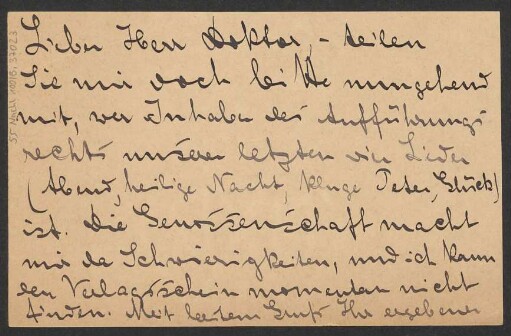 Lieber Herr Doktor, - teilen
Sie mir doch bitte umgehend
mit, wer Inhaber des Aufführungs
rechts unserer letzten vier Lieder
(Abend, heilige Nacht, kluge Peter, Glück)
ist. Die Genossenschaft macht
mir da Schwierigkeiten, und ich kann
den Verlagsschein momentan nicht
finden. Mit bestem Gruß Ihr ergebener